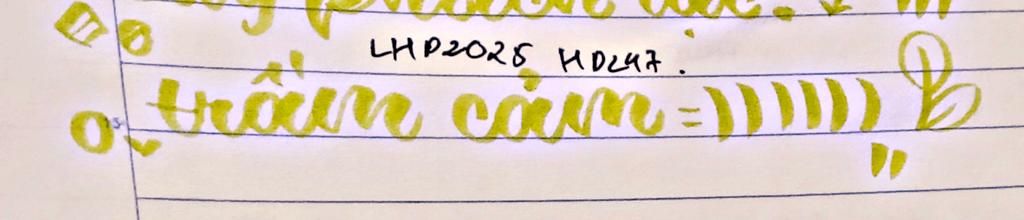 LHP2025 HD247.
trầm cảm =)))))))
"